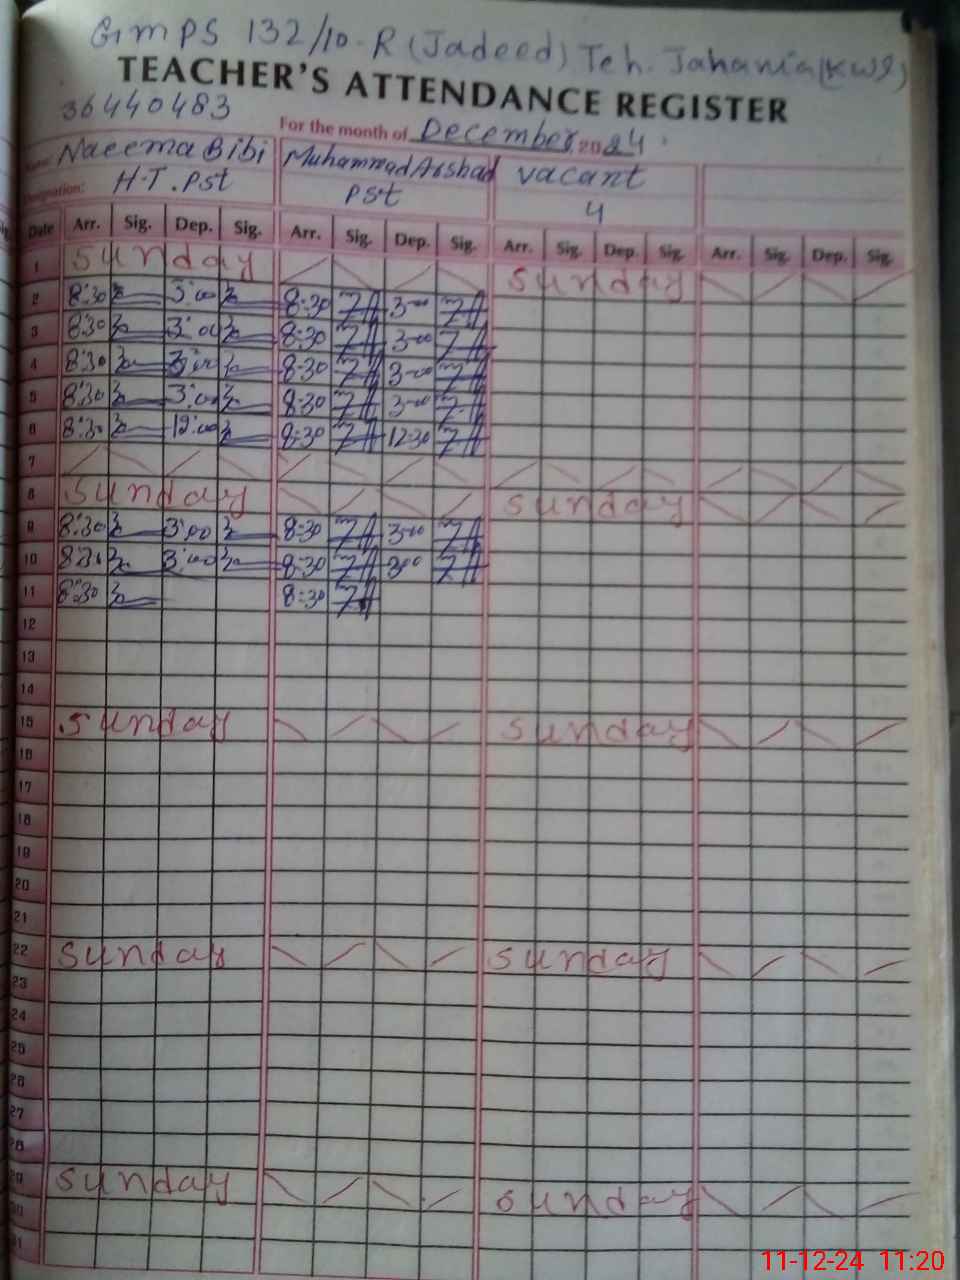 GMPS 132/10-R (Jadeed) Teh. Jahania (KWL)
TEACHER'S ATTENDANCE REGISTER
36440483
For the month of December 2024
Name: Naeema Bibi Muhammad Arshad vacant
Designation: H-T. Pst Pst 4
Date Arr. Sig. Dep. Sig. Arr. Sig. Dep. Sig. Arr. Sig. Dep. Sig. Arr. Sig. Dep. Sig.
1 Sunday Sunday
2 8:30 3:00 8:30 3-00
3 8:30 3:00 8:30 3-00
4 8:30 3:00 8:30 3-00
5 8:30 3:00 8:30 3-00
6 8:30 12:00 8:30 12-30
7
8 Sunday Sunday
9 8:30 3:00 8:30 3-00
10 8:30 3:00 8:30 3:00
11 8:30 8:30
12
13
14
15 Sunday Sunday
16
17
18
19
20
21
22 Sunday Sunday
23
24
25
26
27
28
29 Sunday Sunday
30
31
11-12-24 11:20